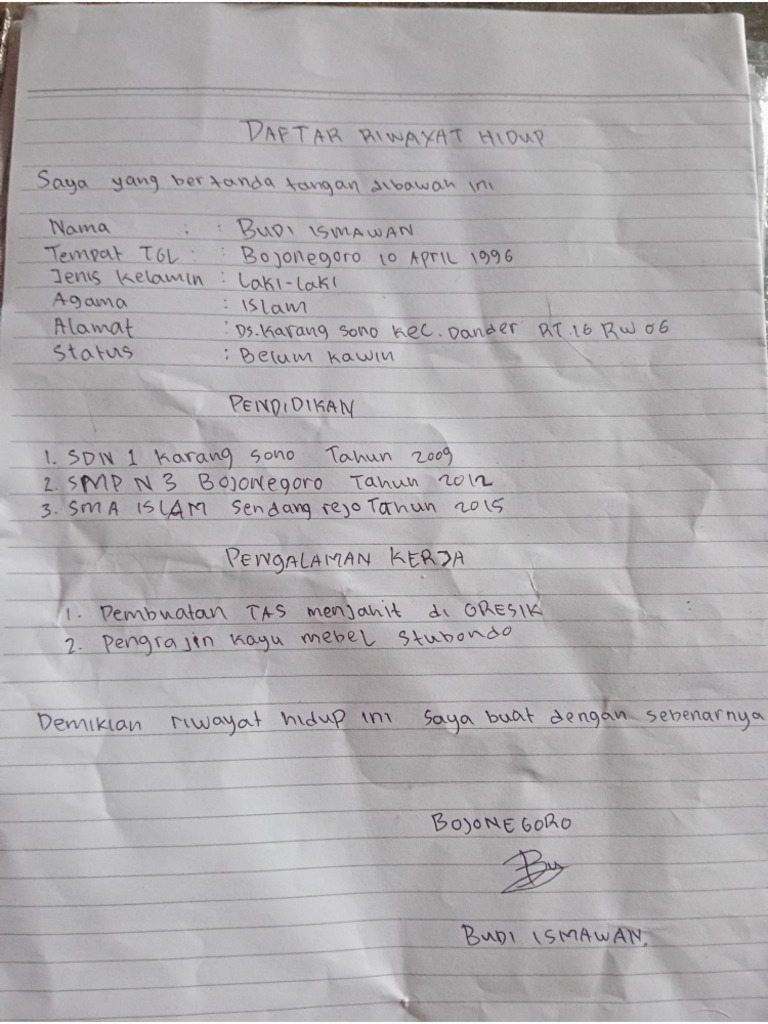 DAFTAR RIWAYAT HIDUP
Saya yang bertanda tangan dibawah ini
Nama : : BUDI ISMAWAN
Tempat TGL : : Bojonegoro 10 APRIL 1996
Jenis Kelamin : Laki-Laki
Agama : ISLam
Alamat : Ds.Karang sono Kec.Dander RT.16 RW 06
Status : Belum Kawin
PENDIDIKAN
1. SDN 1 Karang sono Tahun 2009
2. SMP N 3 Bojonegoro Tahun 2012
3. SMA ISLAM Sendang rejo Tahun 2015
PENGALAMAN KERJA
1. Pembuatan TAS menjahit di GRESIK
2. Pengrajin Kayu mebel Stubondo
Demikian riwayat hidup ini saya buat dengan sebenarnya
BOJONEGORO
BUDI ISMAWAN.